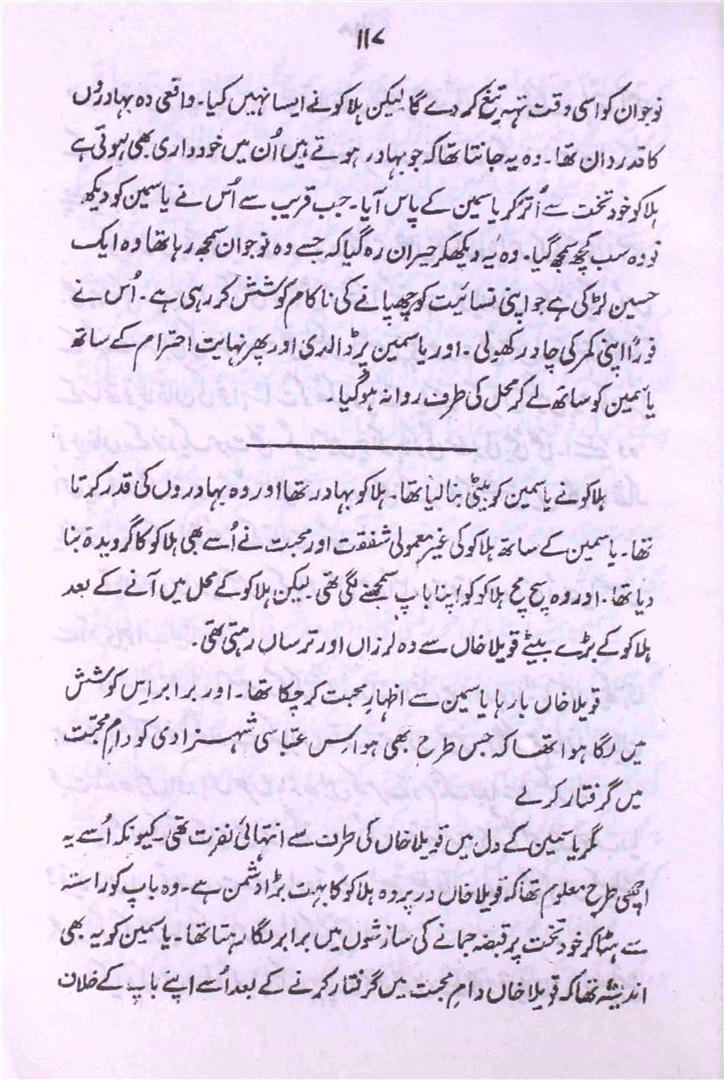 ۱۱۷
نوجوان کو اسی وقت تہہ تیغ کر دے گا لیکن ہلاکو نے ایسا نہیں کیا۔ واقعی وہ بہادروں
کا قدر دان تھا۔ وہ یہ جانتا تھا کہ جو بہادر ہوتے ہیں اُن میں خودداری بھی ہوتی ہے
ہلاکو خود تخت سے اُتر کر یاسمین کے پاس آیا۔ جب قریب سے اُس نے یاسمین کو دیکھا
تو وہ سب کچھ سمجھ گیا۔ وہ یہ دیکھکر حیران رہ گیا کہ جسے وہ نوجوان سمجھ رہا تھا وہ ایک
حسین لڑکی ہے جو اپنی نسائیت کو چھپانے کی ناکام کوشش کر رہی ہے۔ اُس نے
فورًا اپنی کمر کی چادر کھولی۔ اور یاسمین پر ڈالدی اور پھر نہایت احترام کے ساتھ
یاسمین کو ساتھ لے کر محل کی طرف روانہ ہو گیا۔
ہلاکو نے یاسمین کو بیٹی بنا لیا تھا۔ ہلاکو بہادر تھا اور وہ بہادروں کی قدر کرتا
تھا۔ یاسمین کے ساتھ ہلاکو کی غیر معمولی شفقت اور محبت نے اُسے بھی ہلاکو کا گرویدہ بنا
دیا تھا۔ اور وہ سچ مچ ہلاکو کو اپنا باپ سمجھنے لگی تھی لیکن ہلاکو کے محل میں آنے کے بعد
ہلاکو کے بڑے بیٹے قوبلا خاں سے وہ لرزاں اور ترساں رہتی تھی۔
قوبلا خاں بارہا یاسمین سے اظہارِ محبت کر چکا تھا۔ اور برابر اِس کوشش
میں لگا ہوا تھا کہ جس طرح بھی ہو اِس عبّاسی شہزادی کو دامِ محبّت
میں گرفتار کر لے
مگر یاسمین کے دل میں قوبلا خاں کی طرف سے انتہائی نفرت تھی۔ کیونکہ اُسے یہ
اچھی طرح معلوم تھا کہ قوبلا خاں در پردہ ہلاکو کا بہت بڑا دشمن ہے۔ وہ باپ کو راستہ
سے ہٹا کر خود تخت پر قبضہ جمانے کی سازشوں میں برابر لگا رہتا تھا۔ یاسمین کو یہ بھی
اندیشہ تھا کہ قوبلا خاں دامِ محبت میں گرفتار کرنے کے بعد اُسے اپنے باپ کے خلاف